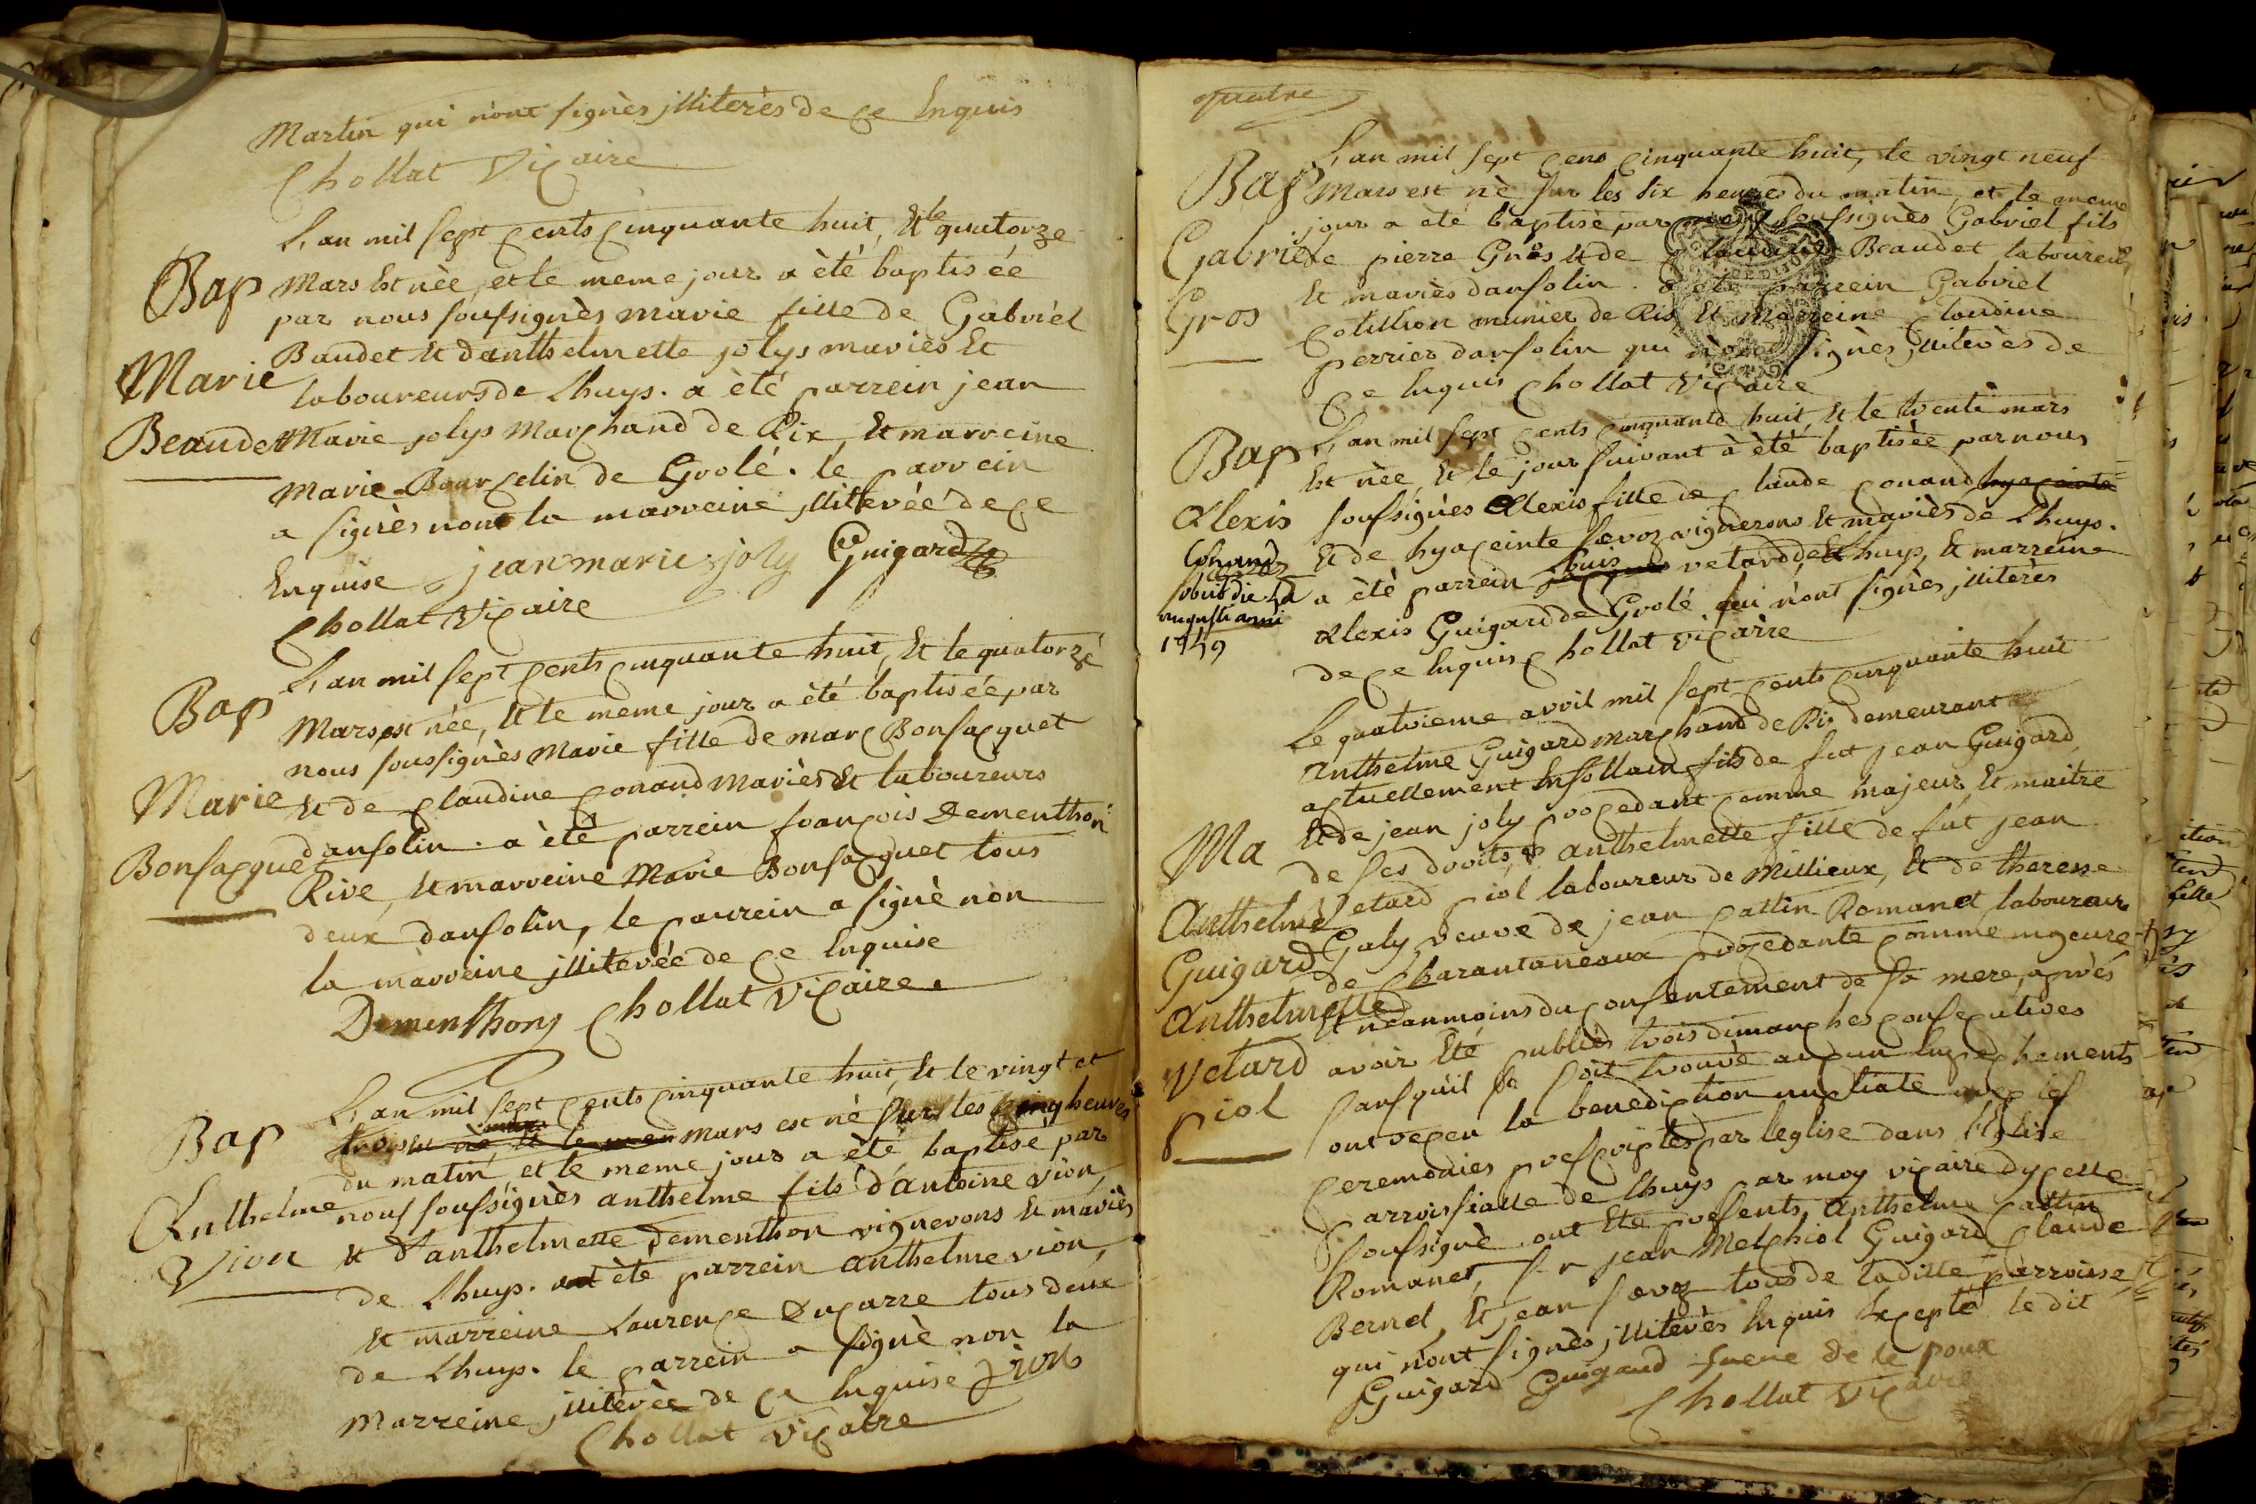 Martin qui n'ont signès jlliterès de ce Enquis
Chollat Vicaire
L'an mil sept cents cinquante huit, Et le quatorze
Bap
Mars Est nèe, et le meme jour a èté baptisée
par nous soussignès marie fille de Gabriel
Marie
Baudet Et danthelmette jolys mariès Et
laboureurs de Lhuys. a èté parrein jean
Beaudet
Marie jolys Marchand de Rix, Et marreine
Marie Bourcelin de Grolé. le parrein
a signès non la marreine jlliterée de ce
Enquise jean marie joly Guigard
Chollat Vicaire
L'an mil sept cents cinquante huit, Et le quatorze
Bap
Mars est née, Et le meme jour a èté baptisée par
nous soussignès Marie fille de marc Bonsacquet
Marie
Et de Claudine Conand Mariès Et laboureurs
dansolin. a èté parrein françois Dementhon
Bonsacquet
Rive, Et marreine Marie Bonsacquet tous
deux dansolin, le parrein a signè non
la marreine jlliterée de ce Enquise
Dementhon Chollat Vicaire.
L'an mil sept cents cinquante huit, Et le vingt et
Bap
trois mars est né sur les cinq heures
du matin, et le meme jour a èté baptisé par
Anthelme
nous soussignès anthelme fils d'antoine vion,
Vion
et d'anthelmette Dementhon vignerons Et mariès
de Lhuys. ont èté parrein anthelme vion,
Et marreine Laurence Ducarre tous deux
de Lhuys. le parrein a signè non la
Marreine jlliterèe de ce Enquise vion
Chollat vicaire
quatre
L'an mil sept cens cinquante huit, le vingt neuf
Bap
Mars est nè sur les six heures du matin, et le meme
jour a èté baptisè par nous soussignès Gabriel fils
Gabriel
de pierre Gros Et de Claudine Beaudet laboureurs
Et mariès dansolin. a èté parrein Gabriel
Gros
Cotillion munier de Rix, Et Marreine Claudine
perrier dansolin qui n'ont signès jlliterès de
Ce Enquis Chollat Vicaire
L'an mil sept cents cinquante huit, Et le trente mars
Bap
Est nèe, Et le jour suivant à èté baptisèe par nous
Alexis
soussignès Alexis fille de Claude Conand hyaceinte
Conand
Et de hyaceinte Savoz vignerons Et mariès de Lhuys.
obiit die 5a
a èté parrein Louis vetard de Lhuys, Et marreine
augusti anni
Alexis Guigard de Grolé. qui n'ont signès jlliterès
1759
de ce Enquis Chollat vicaire
Le quatrieme avril mil sept cents cinquante huit
anthelme Guigard marchand de Rix demeurant
actuellement Ensollain fils de fut jean Guigard
Ma
Et de jean joly procedant comme majeur Et maitre
de ses droits, & anthelmette fille de fut jean
Anthelme
Vetard piol laboureur de Millieux, Et de therese
Guigard
Galy veuve de jean Cattin Romanet laboureur
Anthelmette
de Charantaneaux procedante comme majeure
Et neanmoins du consentement de sa mere, après
Vetard
avoir Eté publiès trois dimanches consecutives
piol
sans qu'il se soit trouvè aucun Empechements
ont reçeu la benediction nuptiale avec les
Ceremonies prescriptes par leglise dans l'Eglise
parroissialle de Lhuys par moy vicaire dycelle
soussignè. ont Eté presents, Anthelme Cattin
Romanet, Sr jean Melchiol Guigard Claude
Bernel, Et jean Savoz tous de laditte parroisse,
qui n'ont signès jlliterès Enquis Excepté le dit
Guigard Guigaud frere de le poux
Chollat Vicaire